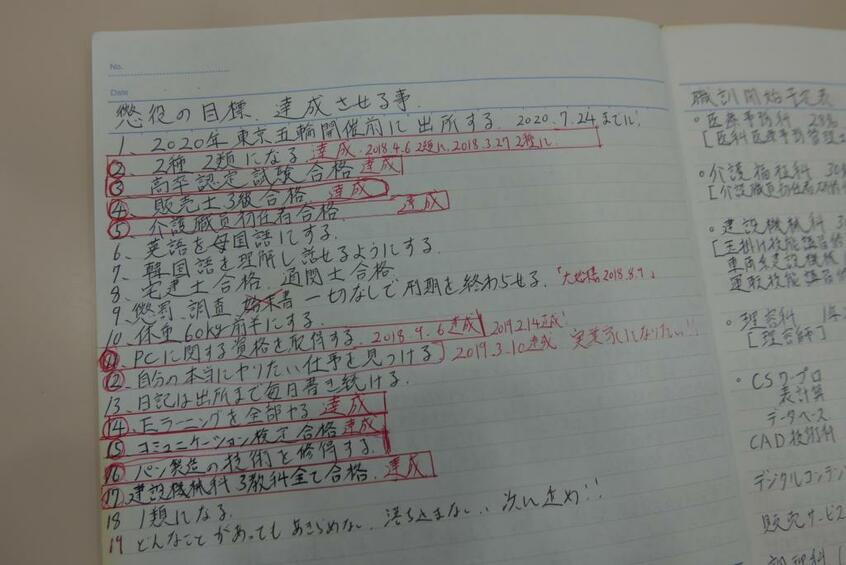 No.
Date
懲役の目標、達成させる事.
1、2020年東京五輪開催前に出所する。2020.7.24までに!
②、2種 2類になる 達成 2018.4.6 2類に、2018.3.27 2種に
③、高卒認定試験合格 達成
④、販売士3級合格. 達成
⑤、介護職員初任者合格. 達成
6、英語を母国語にする.
7、韓国語を理解し話せるようにする.
8、宅建士合格. 通関士合格.
9、懲罰、調査、始末書 一切なしで刑期を終わらせる. 2018.8.9」
10、体重60kg前半にする.
⑪、PCに関する資格を取得する. 2018.9.6達成 2019.2.14
⑫、自分の本当にヤりたい仕事を見つける 2019.3.10達成 実業家になりたい!!
13、日記は出所まで毎日書き続ける.
⑭、Eラーニングを全部やる 達成
⑮、コミュニケーション検定合格 達成
⑯、パン製造の技術を修得する.
⑰、建設機械科 3教科全て合格. 達成
18 1類になる.
19 どんなことがあってもあきらめない、落ち込まない、次に進め!!
職訓開始予定表
・医療事務科 28
[医科医療事務管理士
・介護福祉科 30
[介護職員初任者研修
・建設機械科 3
[玉掛け技能講習
車両系建設機械
運転技能講習
・理容科 1年
[理容師]
・CSワープロ
表計算
データベース
CAD技術科
デジタルコンテン
販売サービス
調理科